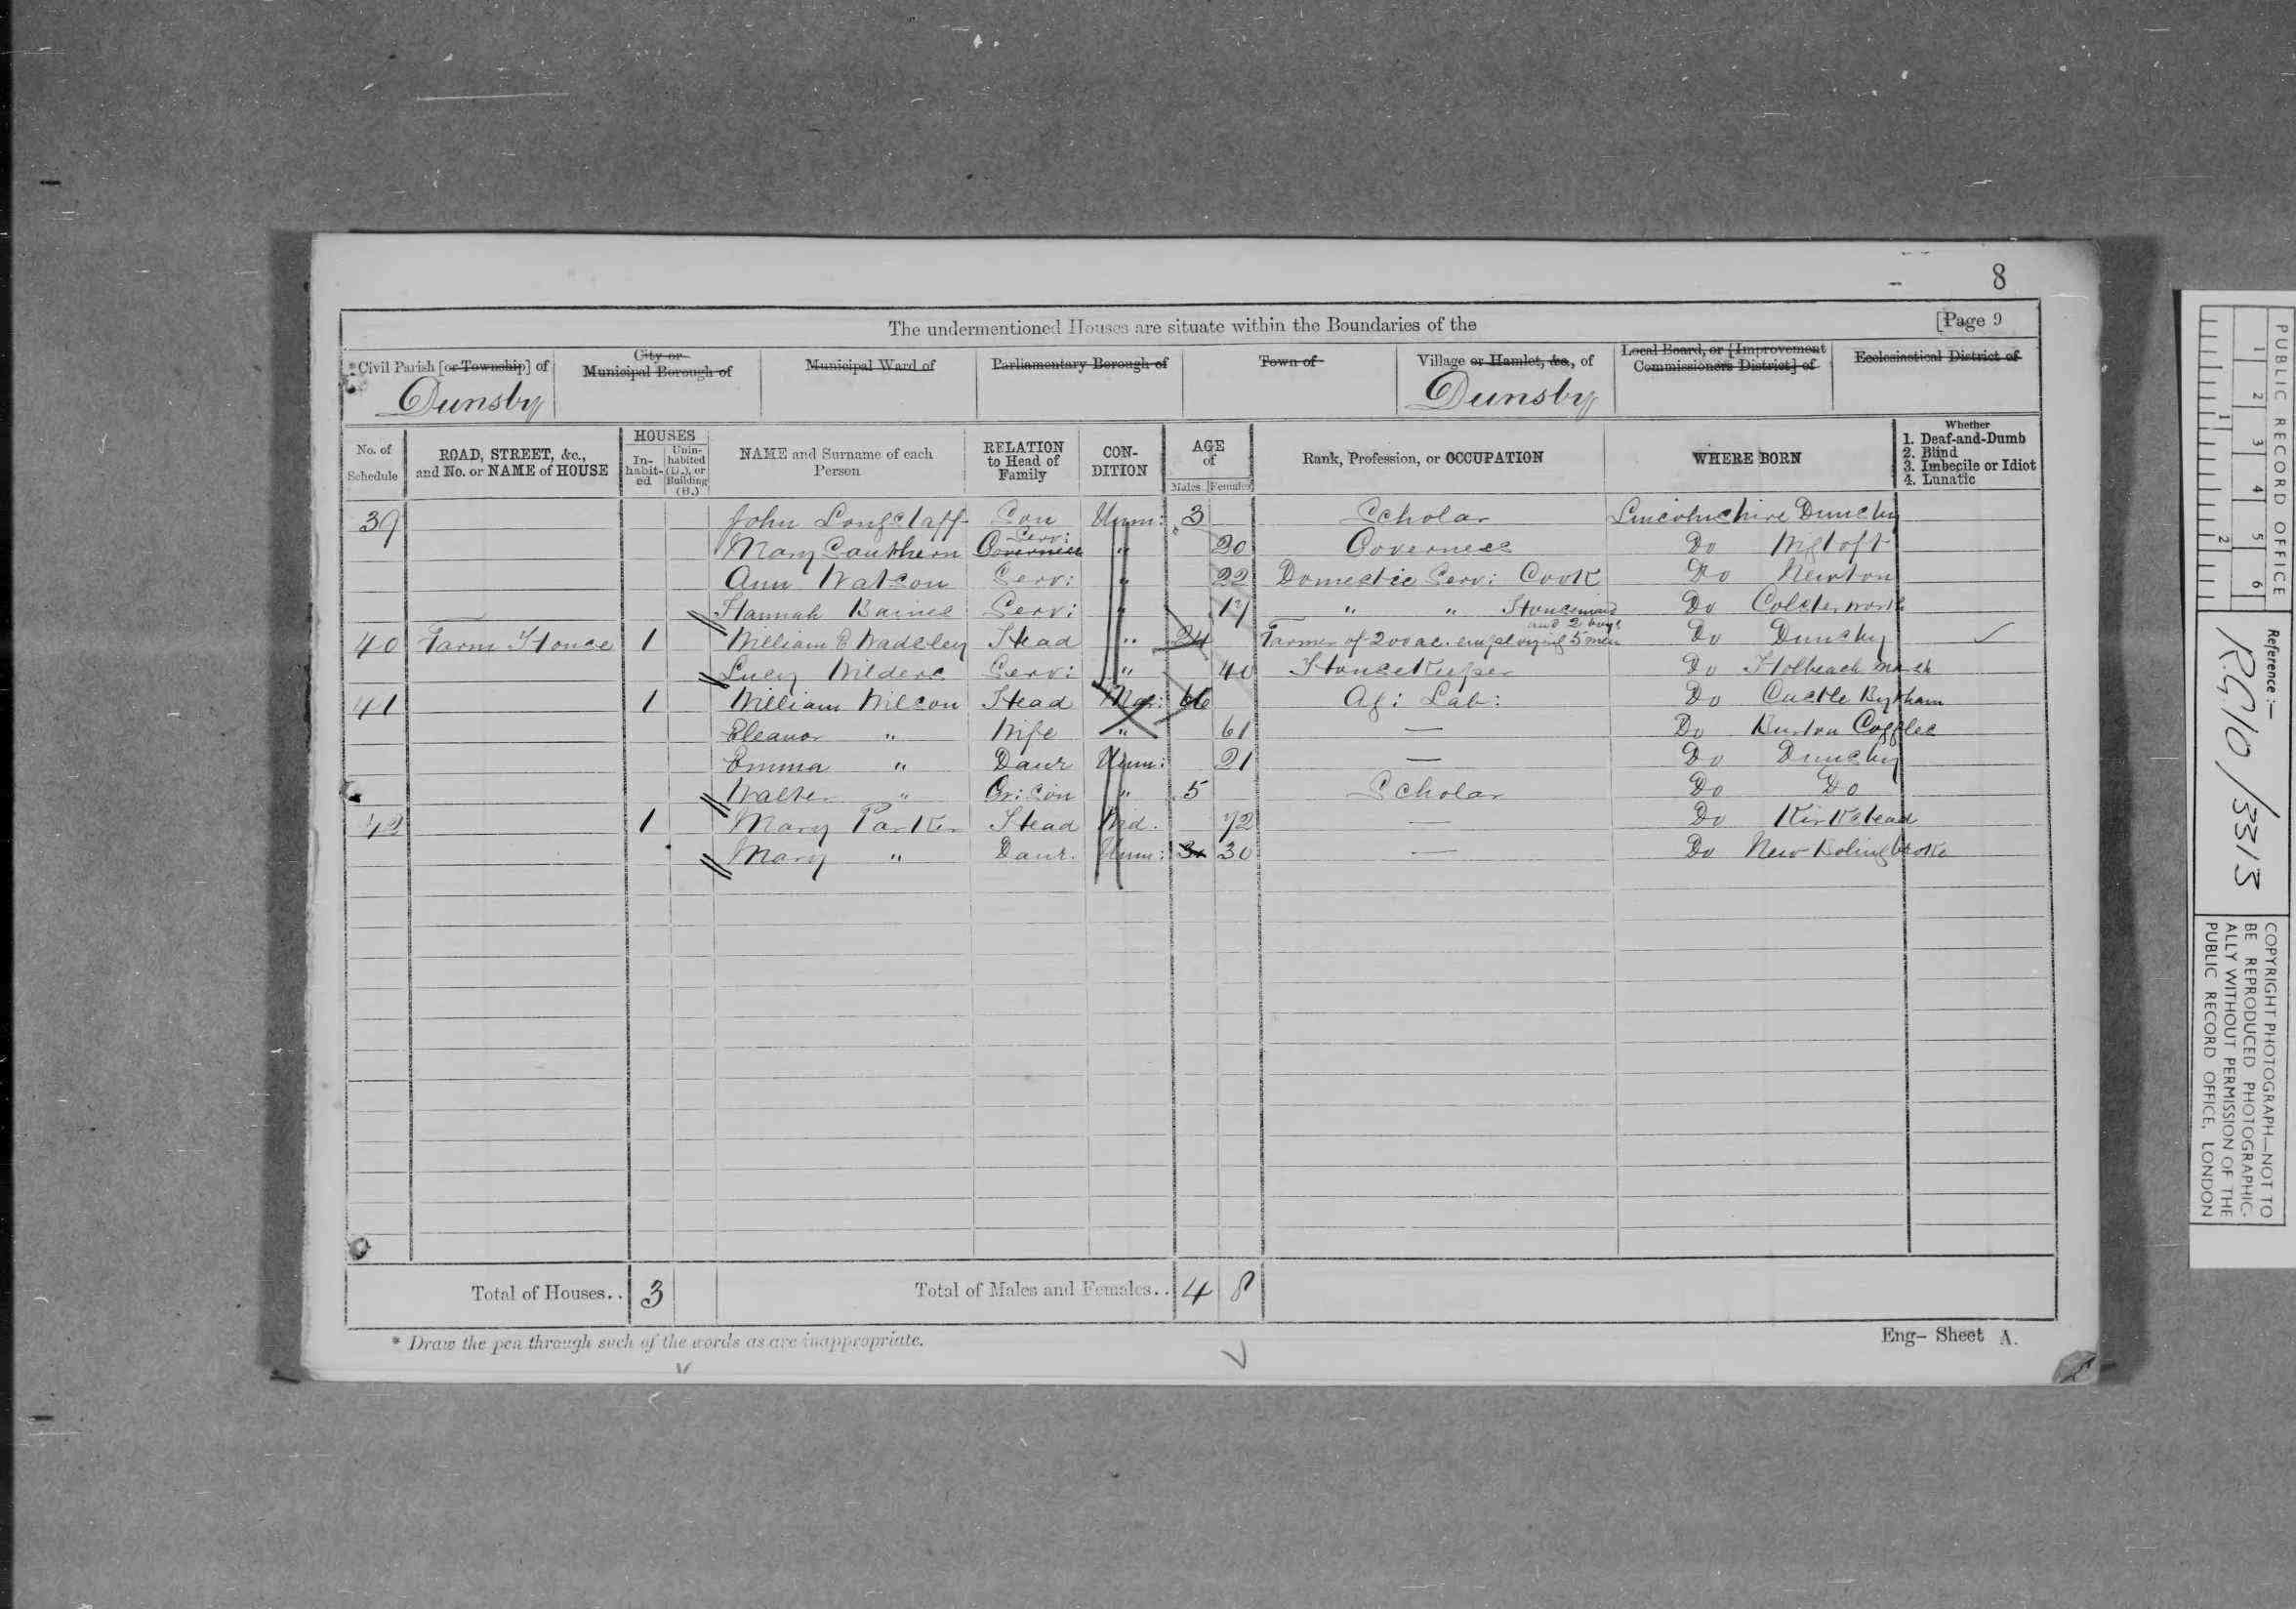 8
The undermentioned Houses are situate within the Boundaries of the [Page 9
Civil Parish [or Township] of City or Municipal Borough of Municipal Ward of Parliamentary Borough of Town of Village or Hamlet, &c., of Local Board, or [Improvement Commissioners District] of Ecclesiastical District of
Dunsby Dunsby
No. of Schedule ROAD, STREET, &c., and No. or NAME of HOUSE HOUSES Inhabited Uninhabited (U.), or Building (B.) NAME and Surname of each Person RELATION to Head of Family CONDITION AGE of Males Females Rank, Profession, or OCCUPATION WHERE BORN Whether 1. Deaf-and-Dumb 2. Blind 3. Imbecile or Idiot 4. Lunatic
39 John Longstaff Son Unm: 3 Scholar Lincolnshire Dunsby
Mary Cauthern Governess Serv: " 20 Governess Do Wigtoft
Ann Watson Serv: " 22 Domestic Serv: Cook Do Newton
Hannah Baines Serv: " 17 " " Housemaid Do Colsterworth
40 Farm House 1 William E Wadsley Head " 24 Farmer of 200 ac. employing 5 men and 2 boys Do Dunsby
Lucy Wilders Serv: " 40 HouseKeeper Do Holbeach Marsh
41 1 William Wilson Head Mar: 66 Ag: Lab: Do Castle Bytham
Eleanor " Wife " 61 — Do Burton Coggles
Emma " Daur Unm: 21 — Do Dunsby
Walter " Gr: Son " 5 Scholar Do Do
42 1 Mary Parker Head Wid. 72 — Do Kirkstead
Mary " Daur. Unm: 30 — Do New Bolingbroke
Total of Houses.. 3 Total of Males and Females.. 4 8
* Draw the pen through such of the words as are inappropriate. Eng- Sheet A.
PUBLIC RECORD OFFICE
1 2 3 4 5 6
1 2
Reference:—
R.G.10/3313
COPYRIGHT PHOTOGRAPH—NOT TO
BE REPRODUCED PHOTOGRAPHIC-
ALLY WITHOUT PERMISSION OF THE
PUBLIC RECORD OFFICE, LONDON